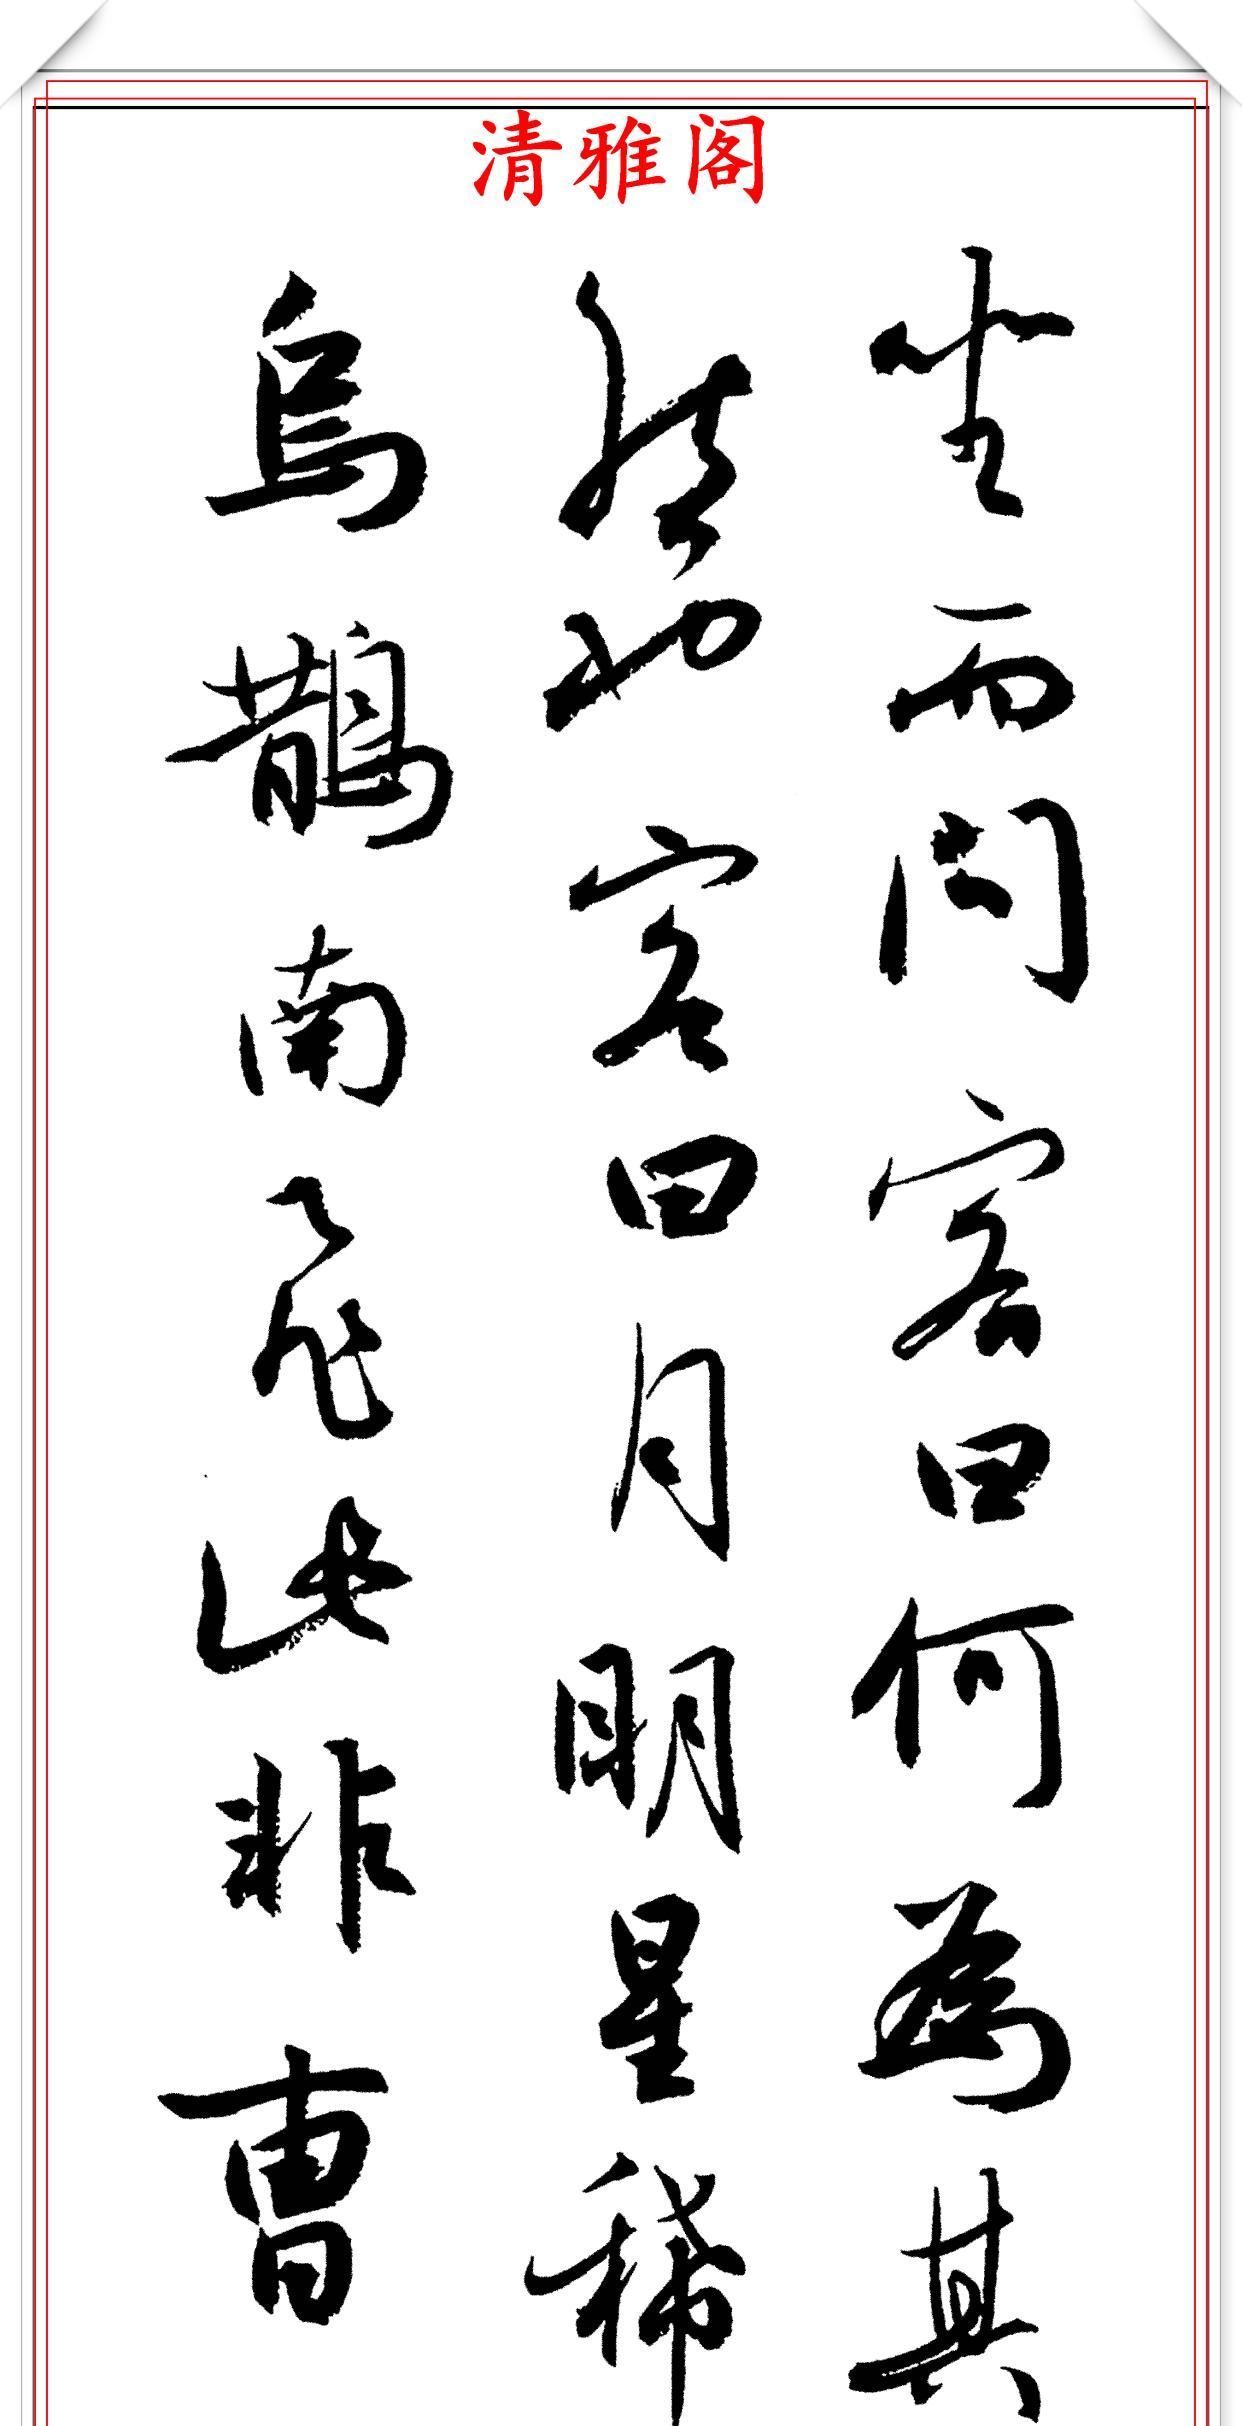 清雅阁
坐而問客曰何為其
然也客曰月明星稀
烏鵲南飛此非曹